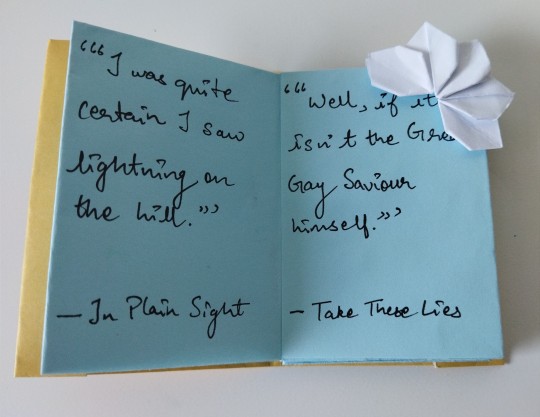 “““I was quite
certain I saw
lightning on
the hill.”””
— In Plain Sight
“““Well, if it
isn't the Gre
Gay Saviour
himself.”””
— Take These Lies